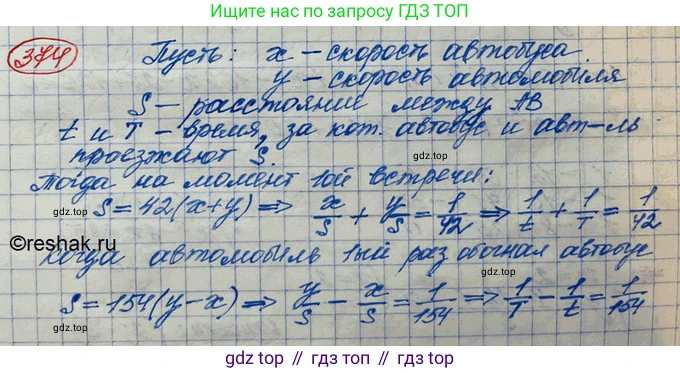 Ищи нас по запросу ГДЗ ТОП
374 Пусть: x – скорость автобуса
y – скорость автомобиля
S – расстояние между AB
t и T – время, за кот. автобус и авт-ль
проезжают S.
Тогда на момент 1ой встречи:
S = 42(x+y) ⇒ x/S + y/S = 1/42 ⇒ 1/t + 1/T = 1/42
gdz.top gdz.top gdz.top
©reshak.ru
Когда автомобиль 1ый раз обогнал автобус
S = 154(y−x) ⇒ y/S − x/S = 1/154 ⇒ 1/T − 1/t = 1/154
gdz.top gdz.top gdz.top
gdz.top || гдз.топ || gdz.top